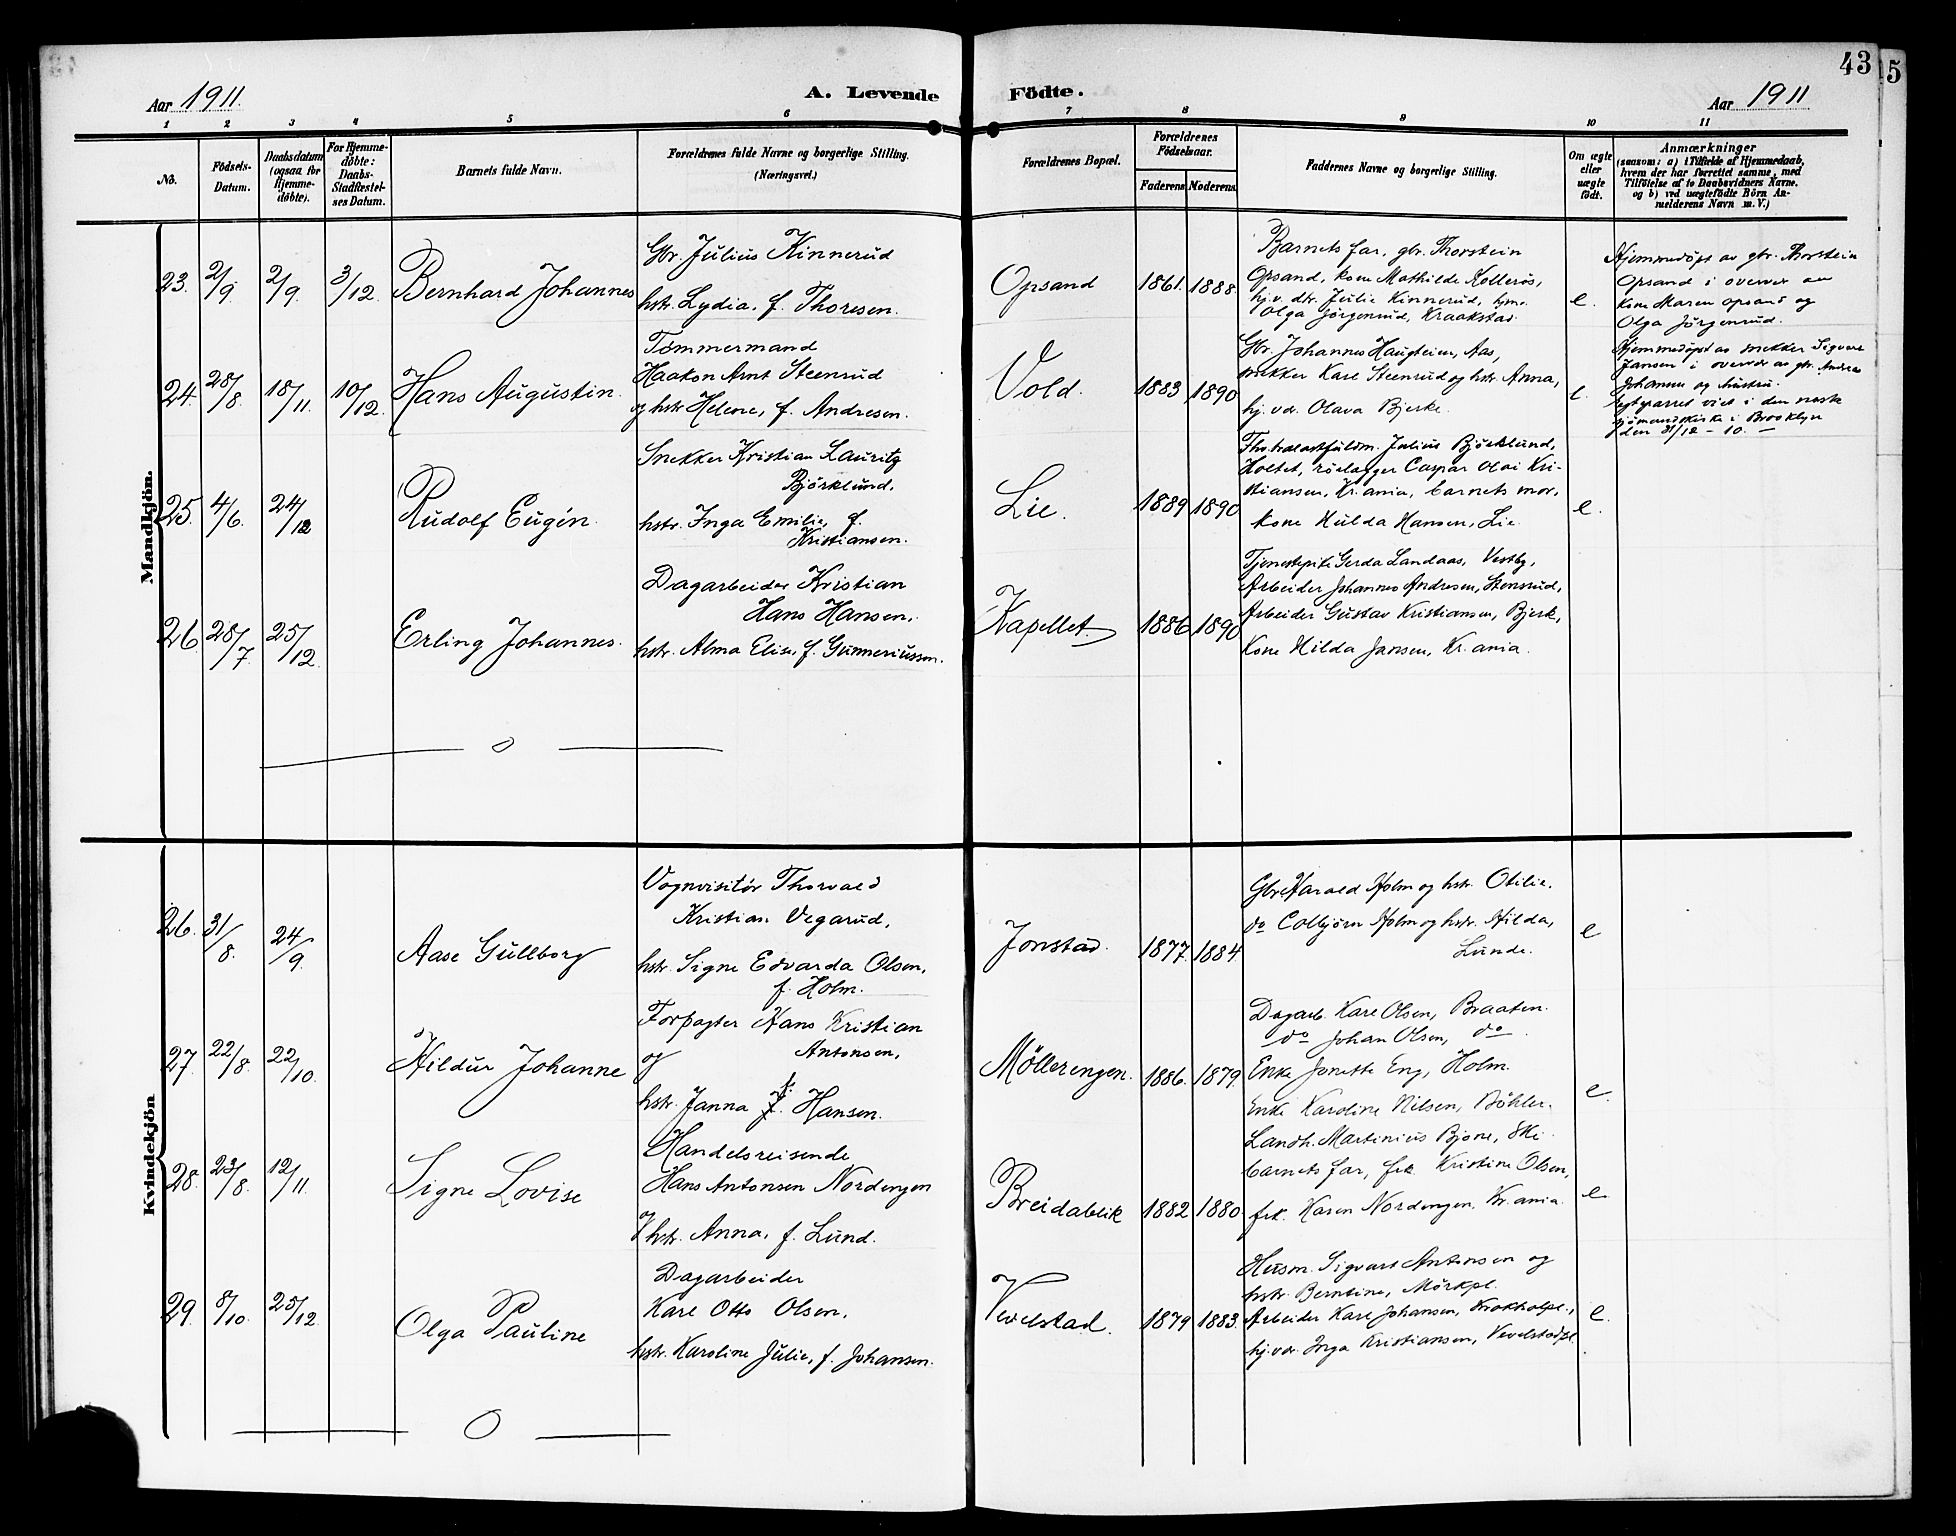 43
5
Aar 1911.
A. Levende
Födte.
Aar 1911
1 2 3 4 5 6 7 8 9 10 11
No.
Födsels-
Datum.
Daabsdatum
(ogsaa for
Hjemme-
døbte).
For Hjemme-
døbte:
Daabs-
Stadfæstel-
ses Datum.
Barnets fulde Navn.
Forældrenes fulde Navne og borgerlige Stilling.
(Næringsvei.)
Forældrenes Bopæl.
Forældrenes
Fødselsaar.
Faderens
Moderens.
Faddernes Navne og borgerlige Stilling.
Om ægte
eller
uægte
født.
Anmærkninger
(saasom: a) i Tilfælde af Hjemmedaab,
hvem der har forrettet samme, med
Tilföielse af to Daabsvidners Navne.
og b) ved uægtefødte Börn An-
melderens Navn m. V.)
Mandkjön.
23. 2/9 2/9 3/12 Bernhard Johannes
Gbr. Julius Kinnerud
hstr. Lydia, f. Thoresen.
Opsand 1861. 1888.
Barnets far, gbr. Thorstein
Opsand, kone Mathilde Kollerös,
hj.v. dtr. Julie Kinnerud, hjm.
Olga Jörgenrud, Kraakstad.
e.
Hjemmedöpt av gbr. Thorstein
Opsand i overvær av
kone Maren Opsand og
Olga Jörgenrud.
24. 28/8 18/11. 10/12. Hans Augustin.
Tømmermand
Haakon Arnt Steenrud
og hstr. Helene, f. Andresen.
Vold. 1883 1890
Gbr. Johannes Haugteien, Aas,
snekker Karl Steenrud og hstr. Anna,
hj. vdr. Olava Bjerke.
e.
Hjemmedöpt av snekker Sigvart
Jansen i overvær av gbr. Andreas
Johansen og hustru.
Egteparret viet i den norske
sjömandskirke i Brooklyn
den 31/12 - 10. -
25. 4/6. 24/12 Rudolf Eugén.
Snekker Kristian Lauritz
Björklund,
hstr. Inga Emilie, f.
Kristiansen.
Lie. 1889 1890
Trælastfuldm. Julius Björklund,
Holtet, rörlægger Caspar Olai Kri-
stiansen, Kr.ania, barnets mor,
kone Hulda Hansen, Lie.
e.
26 28/7 25/12. Erling Johannes.
Dagarbeider Kristian
Hans Hansen,
hstr. Alma Elise, f. Gunneriussen.
Kapellet. 1886 1890
Tjenestepike Gerda Landaas, Vestby,
Arbeider Johannes Andresen, Stensrud,
Arbeider Gustav Kristiansen, Bjerk,
Kone Hilda Jansen, Kr.ania.
Kvindekjön
26. 31/8. 24/9. Aase Gullborg
Vognvisitör Thorvald
Kristian Vegarud,
hstr. Signe Edvarda Olsen,
f. Holm.
Jonstad. 1877. 1884
Gbr Harald Holm og hstr. Otilie.
do Colbjörn Holm og hstr. Hilda,
Lunde.
e
27. 22/8. 22/10. Hildur Johanne
Forpagter Hans Kristian
og Antonsen,
hstr. Janna f. Hansen.
Möllerengen. 1886. 1879.
Dagarb. Karl Olsen, Braaten.
do Johan Olsen, do.
Enke Jonette Eng, Holm.
Enke Karoline Nilsen, Böhler.
e.
28. 23/8. 12/11. Signe Lovise
Handelsreisende
Hans Antonsen Nordengen
& hstr. Anna, f. Lund.
Breidablik 1882 1880.
Landh. Martinius Bjone, Ski.
barnets far, frk. Kristine Olsen,
frk. Karen Nordengen, Kr.ania.
e
29. 8/10. 25/12. Olga Pauline
Dagarbeider
Karl Otto Olsen,
hstr. Karoline Julie, f. Johansen.
Vevelstad. 1879 1883.
Husm. Sigvart Antonsen og
hstr. Berntine, Mörkpl.
Arbeider Karl Johansen, Krokholpl.,
hj.vdr. Inga Kristiansen, Vevelstadpl.
e.